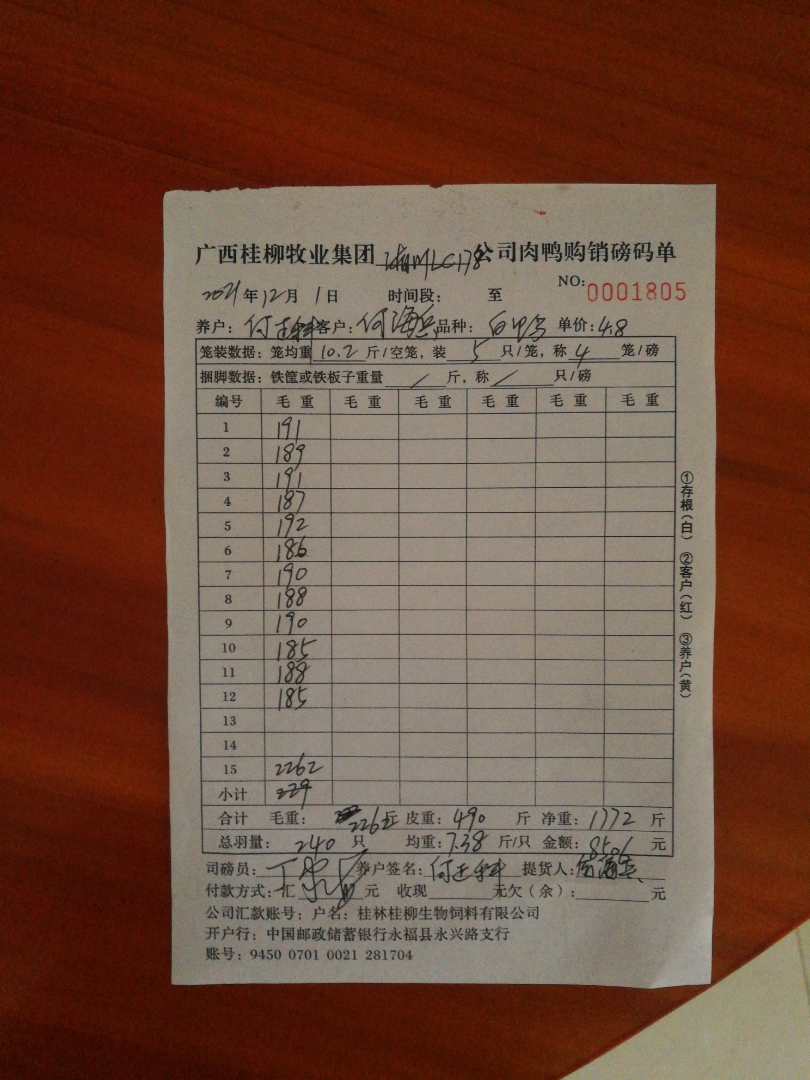 广西桂柳牧业集团 公司肉鸭购销磅码单
2021年12月1日 时间段: 至 NO:0001805
养户: 付建科 客户: 何海兵 品种: 白甲鸟 单价:4.8
笼装数据: 笼均重10.2斤/空笼, 装5只/笼, 称4笼/磅
捆脚数据: 铁筐或铁板子重量/斤, 称/只/磅
编号 毛重 毛重 毛重 毛重 毛重 毛重
1 191
2 189
3 191
4 187
5 192
6 186
7 190
8 188
9 190
10 185
11 188
12 185
13
14
15 2262
小计
合计 毛重: 2262 斤 皮重: 490 斤 净重: 1772 斤
总羽量: 240 只 均重: 7.38 斤/只 金额: 8506 元
司磅员: 养户签名: 付建科 提货人: 何海兵
付款方式: 汇 元 收现 元欠(余): 元
公司汇款账号: 户名: 桂林桂柳生物饲料有限公司
开户行: 中国邮政储蓄银行永福县永兴路支行
账号: 9450 0701 0021 281704
①存根(白) ②客户(红) ③养户(黄)